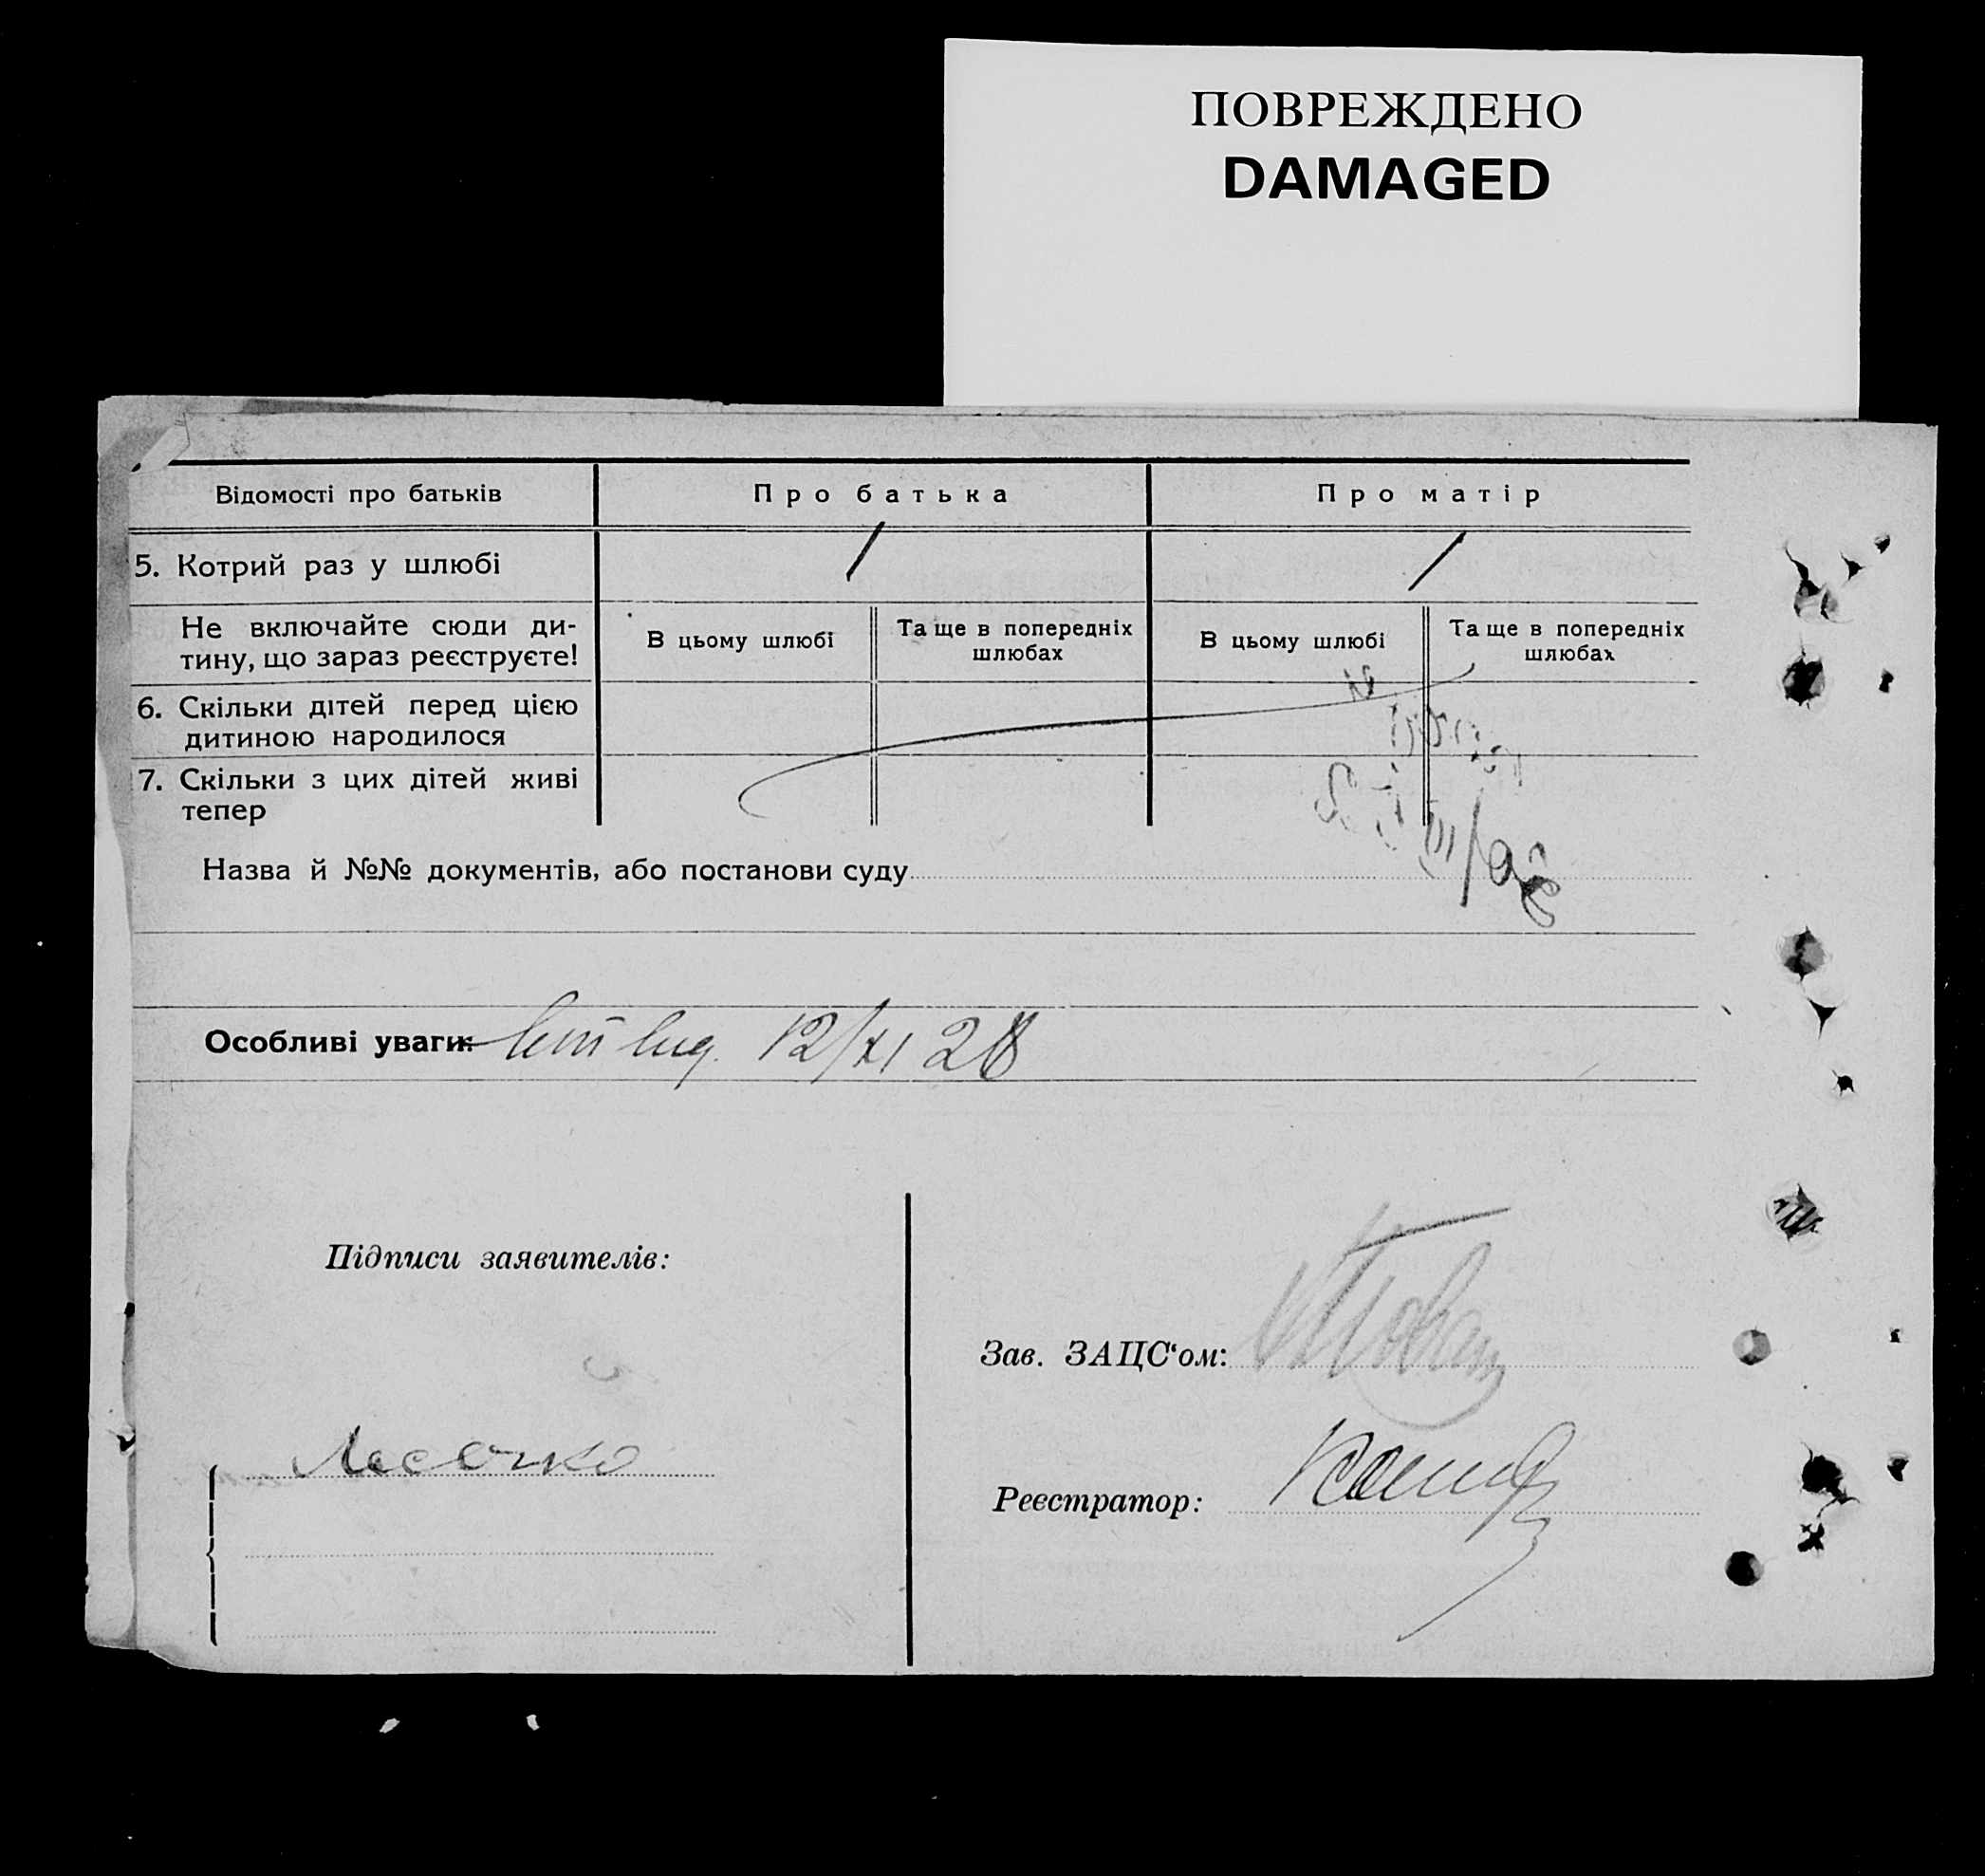 ПОВРЕЖДЕНО
DAMAGED
Відомості про батьків
Про батька
Про матір
5. Котрий раз у шлюбі
/
/
Не включайте сюди ди-
тину, що зараз реєструєте!
В цьому шлюбі
Та ще в попередніх
шлюбах
В цьому шлюбі
Та ще в попередніх
шлюбах
6. Скільки дітей перед цією
дитиною народилося
7. Скільки з цих дітей живі
тепер
Назва й №№ документів, або постанови суду
Особливі уваги: 12/XI 28
Підписи заявителів:
Зав. ЗАЦС‘ом:
Реєстратор: